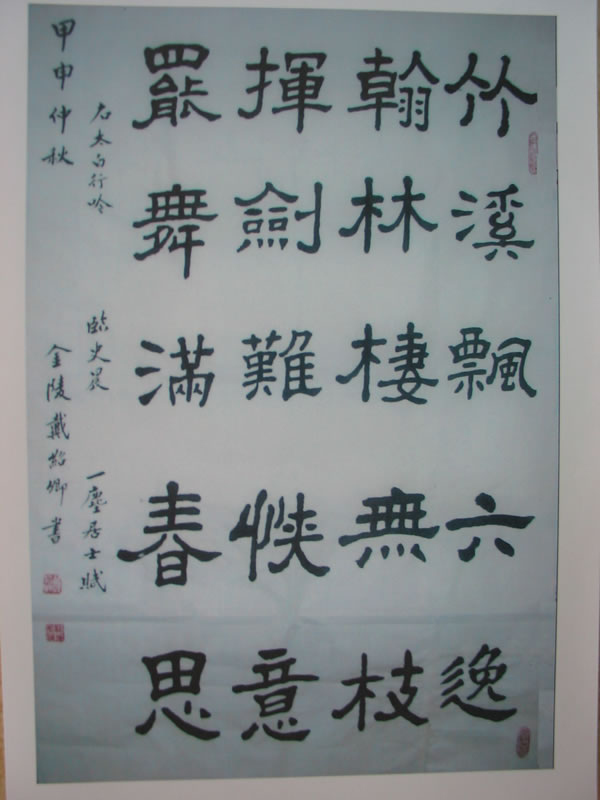 竹溪飄六逸
翰林棲無枝
揮劍難愜意
罷舞滿春思
右太白行吟 臨史晨 一塵居士賦
甲申仲秋 金陵戴紹卿書